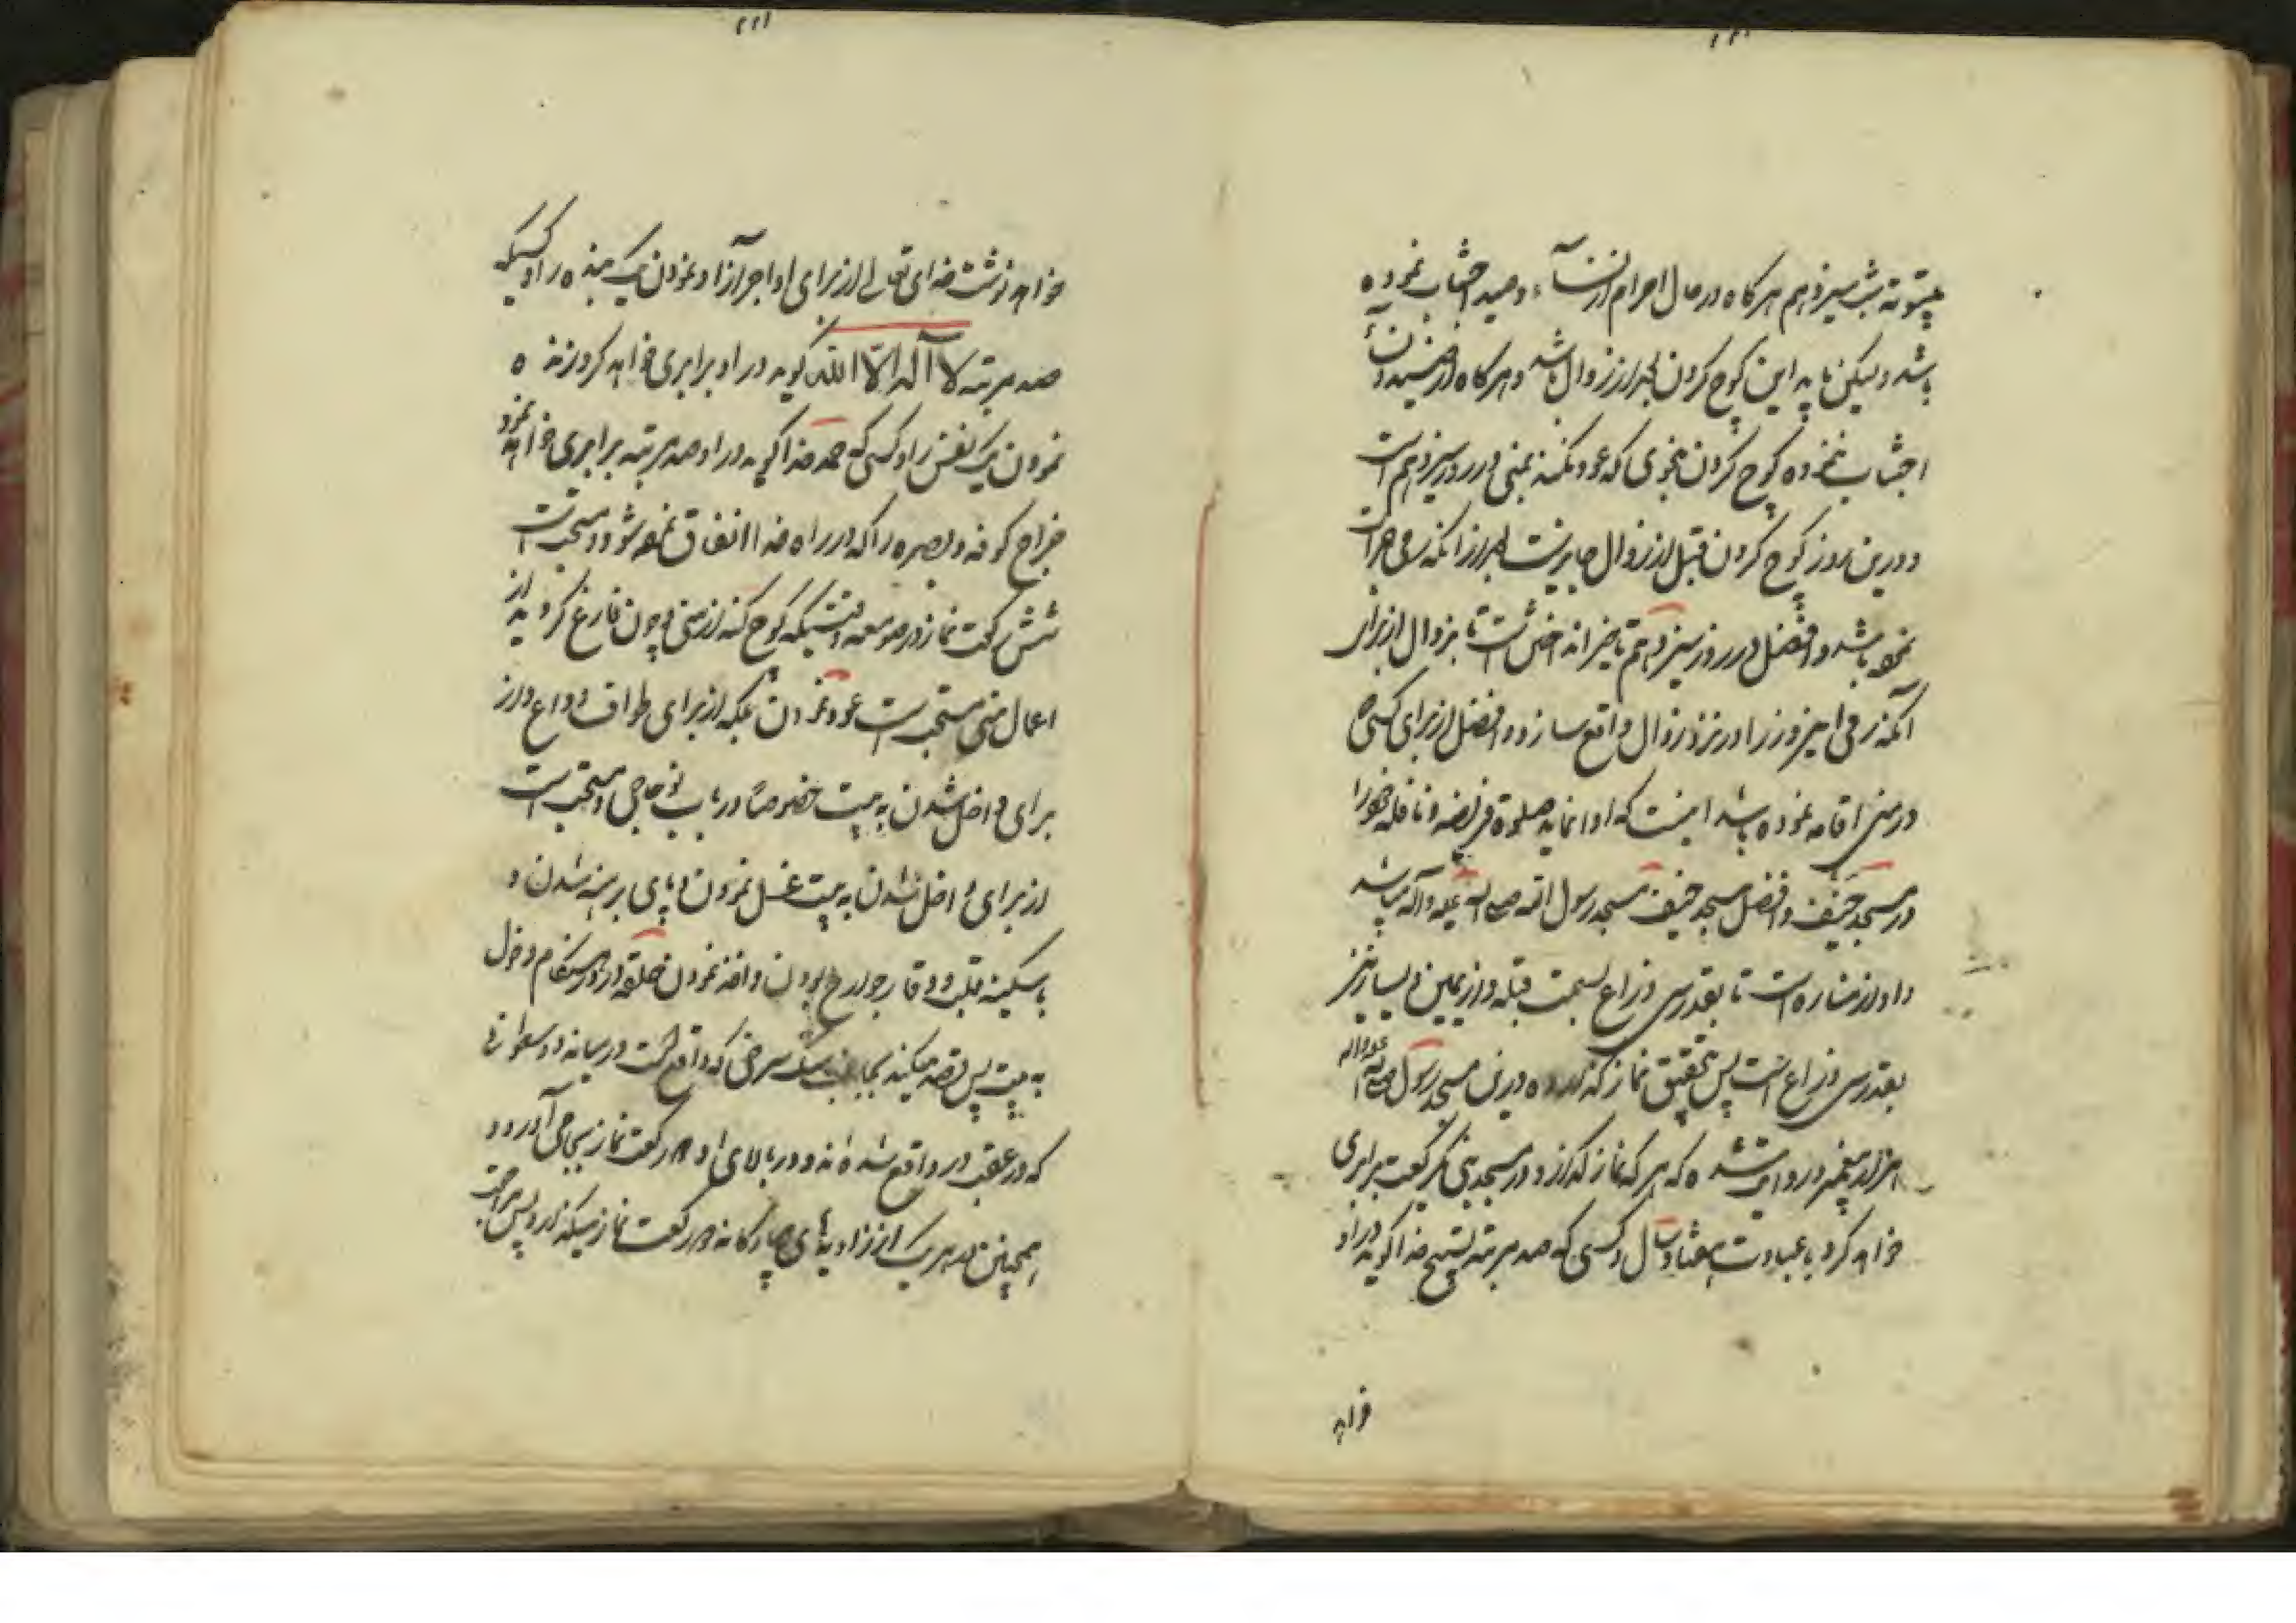 بیتوته شب سیزدهم هرگاه در حال احرام از نسآء و صید اجتناب نموده
باشد و لیکن باید این کوچ کردن بعد از زوال باشد و هرگاه از صید و نسآء
اجتناب ننموده کوچ کردن بنحوی که عود نکند بمنی در روز سیزدهم است
و درین روز کوچ کردن قبل از زوال جایز است بعد از آنکه رمی جمرات
نموده باشد و افضل در روز سیزدهم تا بزوال از برای
آنکه رمی را در نزد زوال واقع سازد و افضل از برای کسی که
در منی اقامه نموده باشد اینست که ادا نماید صلوة فریضه و نافله خود را
در مسجد خیف و افضل مسجد خیف مسجد رسول الله صلی الله علیه و آله میباشد
و او از مناره است تا بقدر سی ذراع بسمت قبله و از یمین و یسار نیز
بقدر سی ذراع است پس بتحقیق نماز گذارده درین مسجد رسول صلی الله علیه و اله
هزار پیغمبر و روایت شده که هر که نماز گذارد در مسجد منی صد رکعت برابری
خواهد کرد با عبادت هفتاد سال و کسی که صد مرتبه تسبیح خدا گوید در او
خواهد
خواهد نوشت خدای تعالی از برای او اجر آزاد نمودن یک بنده را و کسیکه
صد مرتبه لا آله الّا الله گوید در او برابری خواهد کرد زنده
نمودن یک نفس را و کسی که حمد خدا گوید در او صد مرتبه برابری خواهد نمود
خراج کوفه و بصره را که در راه خدا انفاق نموده شود و مستحب است
شش رکعت نماز در صومعه وقتیکه کوچ کند از منی و چون فارغ گردید از
اعمال منی مستحب است عود نمودن بمکه از برای طواف وداع و از
برای داخل شدن به بیت خصوصًا در باب نو حاجی و مستحب است
از برای داخل شدن به بیت غسل نمودن و پای برهنه شدن و
با سکینه قلب و وقار جوارح بودن و اخذ نمودن حلقه در در هنگام دخول
به بیت پس قصد میکند بجانب سنگ سرخی که واقع است در میانه دو سطوانه
که در عقب در واقع شده اند و در بالای او دو رکعت نماز بجا می آورد و
همچنین در هر یک از زاویه های چهارگانه دو رکعت نماز میگذارد پس